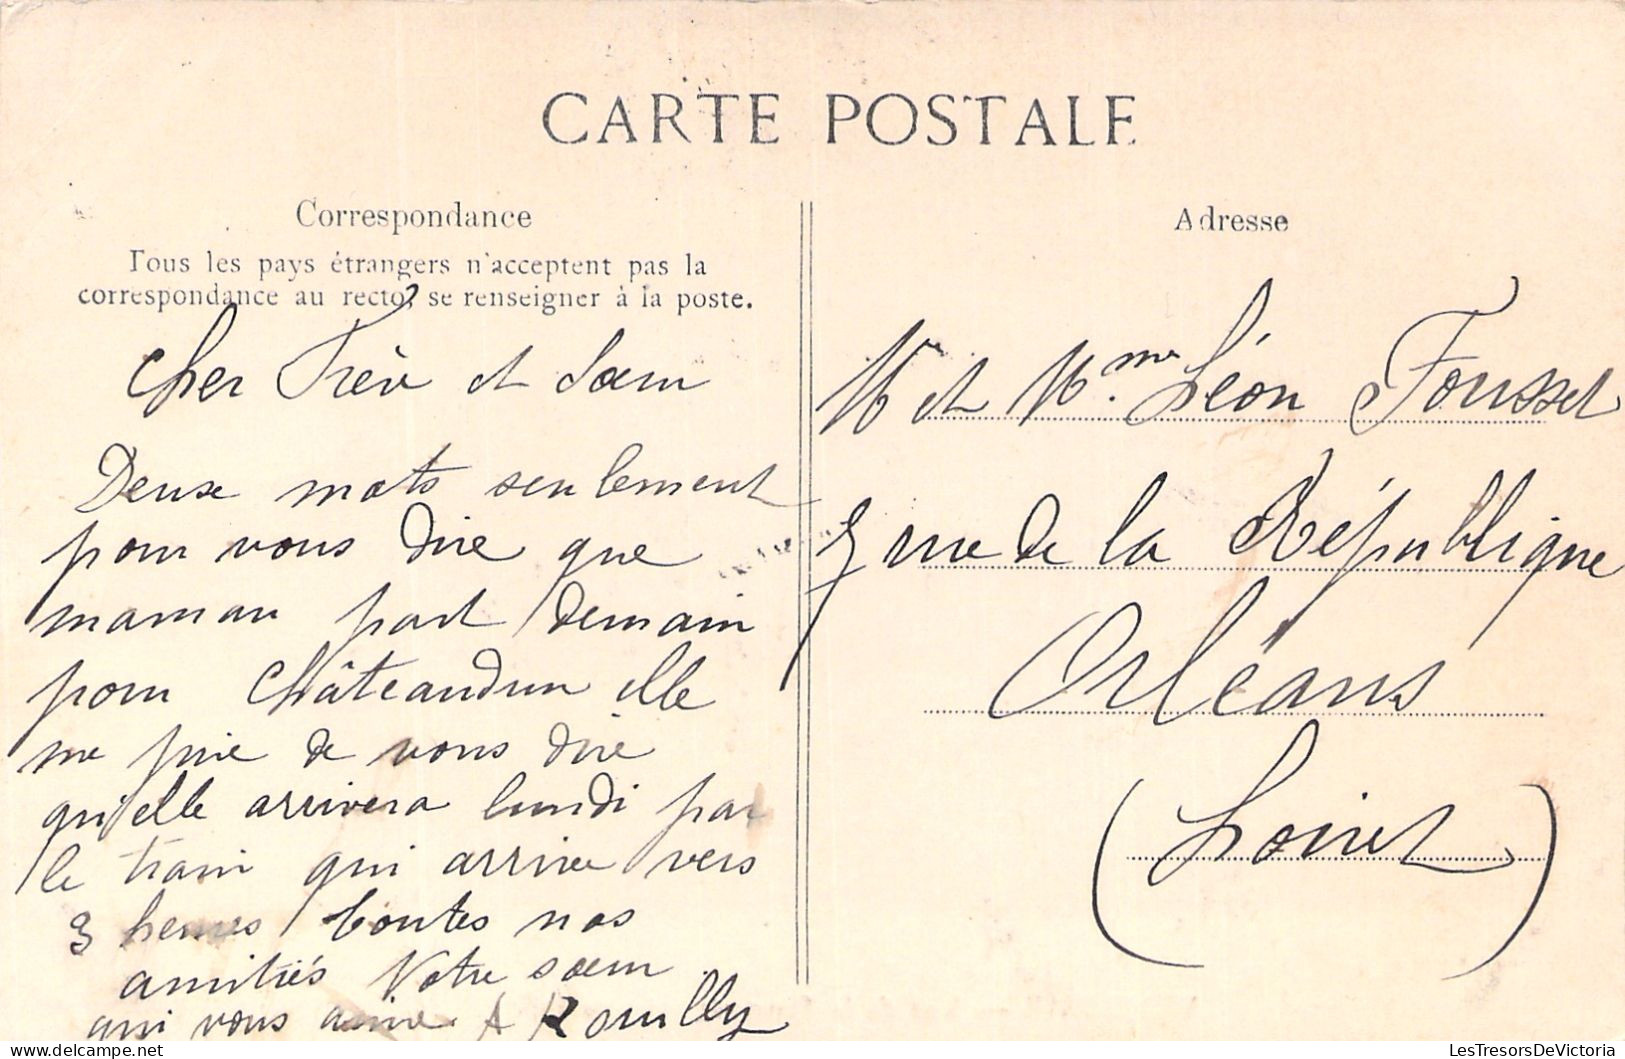 CARTE POSTALE
Correspondance
Tous les pays étrangers n'acceptent pas la
correspondance au recto, se renseigner à la poste.
Cher Frère et Sœur
Deux mots seulement
pour vous dire que
maman part demain
pour Châteaudun elle
me prie de vous dire
qu'elle arrivera lundi par
le train qui arrive vers
3 heures toutes nos
amitiés Votre sœur
qui vous aime A Rouilly
Adresse
Mr et Mme Léon Fousset
rue de la République
Orléans
(Loiret)
LesTresorsDeVictoria